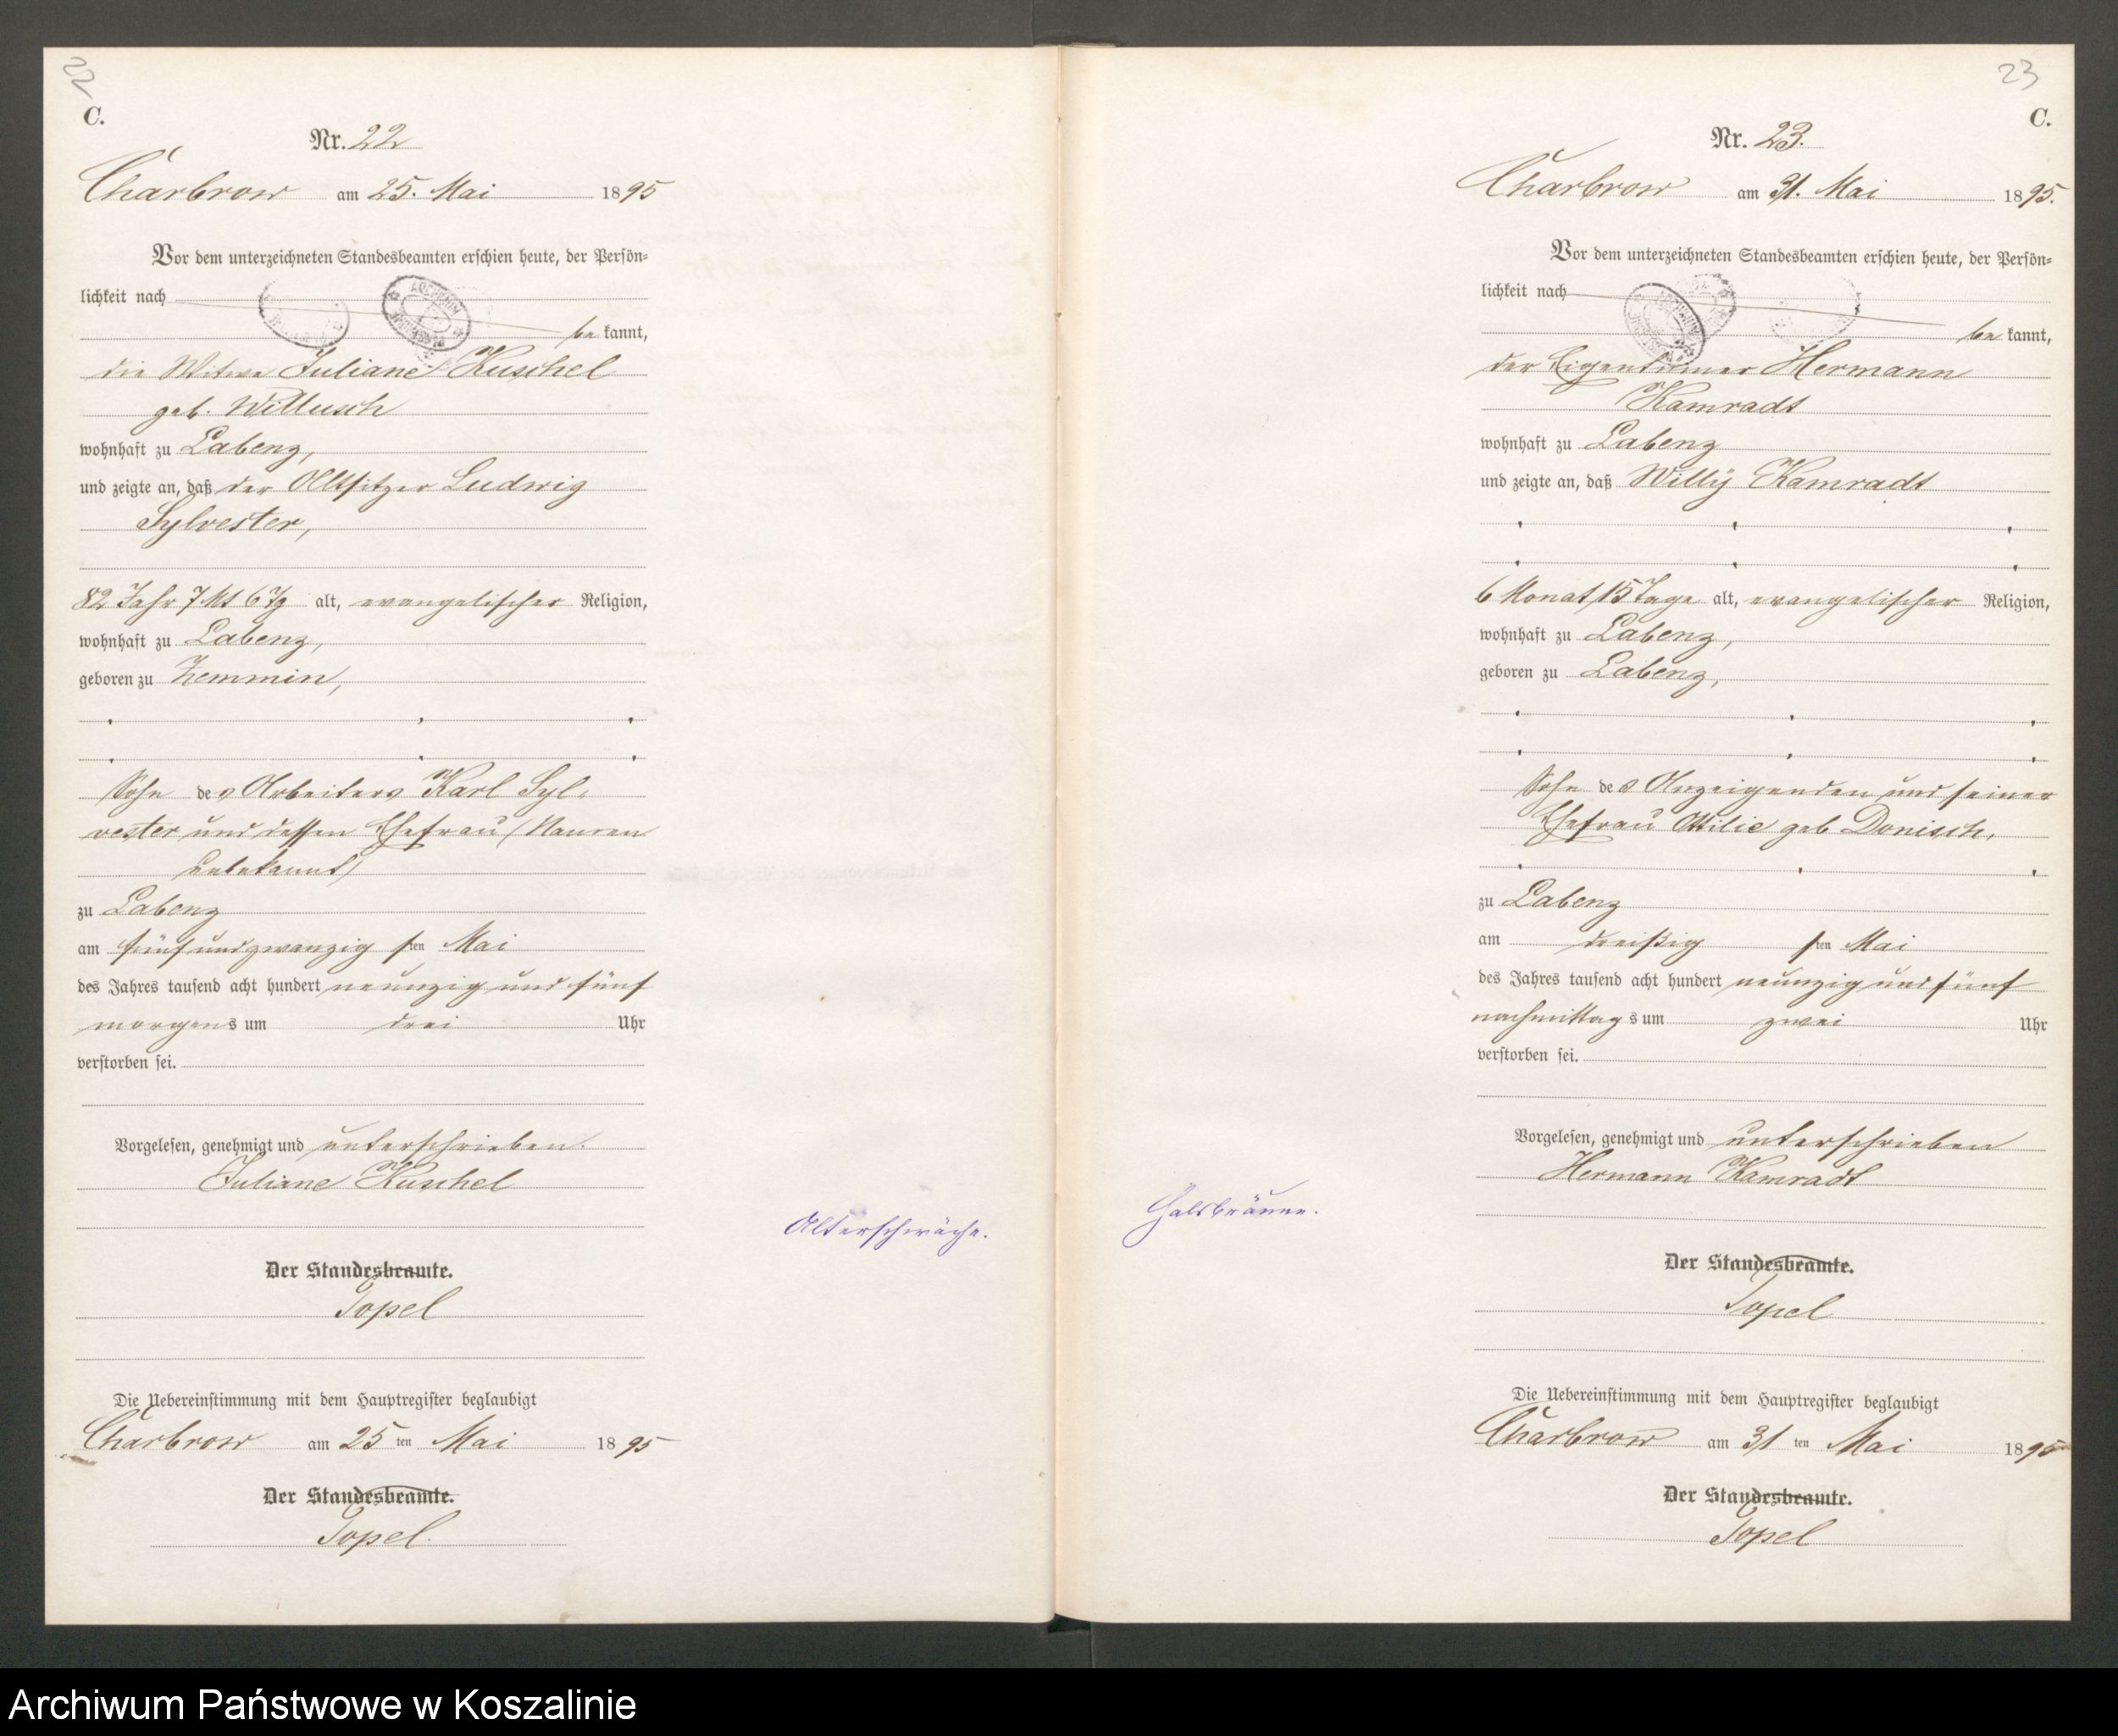 22
C.
Nr. 22
Charbrow am 25. Mai 1895
Vor dem unterzeichneten Standesbeamten erschien heute, der Persön-
lichkeit nach
be kannt,
die Witwe Juliane Kuschel
geb. Willusch
wohnhaft zu Labenz,
und zeigte an, daß der Altsitzer Ludwig
Sylvester,
82 Jahr 7 Mt 6 Tg alt, evangelischer Religion,
wohnhaft zu Labenz,
geboren zu Zemmin,
Sohn des Arbeiters Karl Syl-
vester und dessen Ehefrau (Namen
unbekannt)
zu Labenz
am fünfundzwanzigsten Mai
des Jahres tausend acht hundert neunzig und fünf
morgens um drei Uhr
verstorben sei.
Vorgelesen, genehmigt und unterschrieben.
Juliane Kuschel
Alterschwäche.
Der Standesbeamte.
Topel
Die Uebereinstimmung mit dem Hauptregister beglaubigt
Charbrow am 25 ten Mai 1895
Der Standesbeamte.
Topel.
23
C.
Nr. 23.
Charbrow am 31. Mai 1895.
Vor dem unterzeichneten Standesbeamten erschien heute, der Persön-
lichkeit nach
be kannt,
der Eigentümer Hermann
Kamradt
wohnhaft zu Labenz
und zeigte an, daß Willÿ Kamradt
6 Monat 15 Tage alt, evangelischer Religion,
wohnhaft zu Labenz,
geboren zu Labenz,
Sohn des Anzeigenden und seiner
Ehefrau Ottilie geb Donisch,
zu Labenz
am dreißigsten Mai
des Jahres tausend acht hundert neunzig und fünf
nachmittags um zwei Uhr
verstorben sei.
Vorgelesen, genehmigt und unterschrieben
Hermann Kamradt
Halsbräune.
Der Standesbeamte.
Topel
Die Uebereinstimmung mit dem Hauptregister beglaubigt
Charbrow am 31 ten Mai 1895
Der Standesbeamte.
Topel
Archiwum Państwowe w Koszalinie